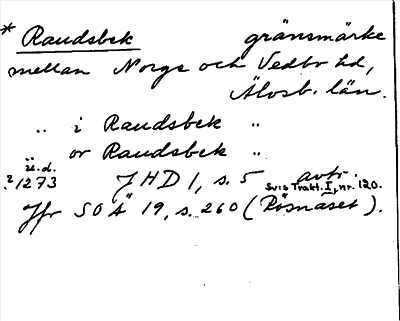 * Raudsbek gränsmärke
mellan Norge och Vedbo hd,
Älvsb. län.
.. i Raudsbek ..
.. or Raudsbek ..
u.d.
?1273 JHD 1, s. 5 avtr.
Svis Trakt. I, nr. 120.
Jfr SOÄ 19, s. 260 (Rösnäset).